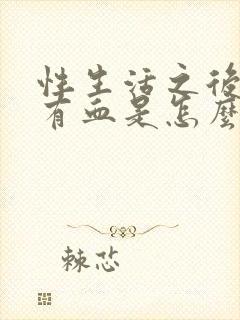 性生活之後
有血是怎麼
棘芯